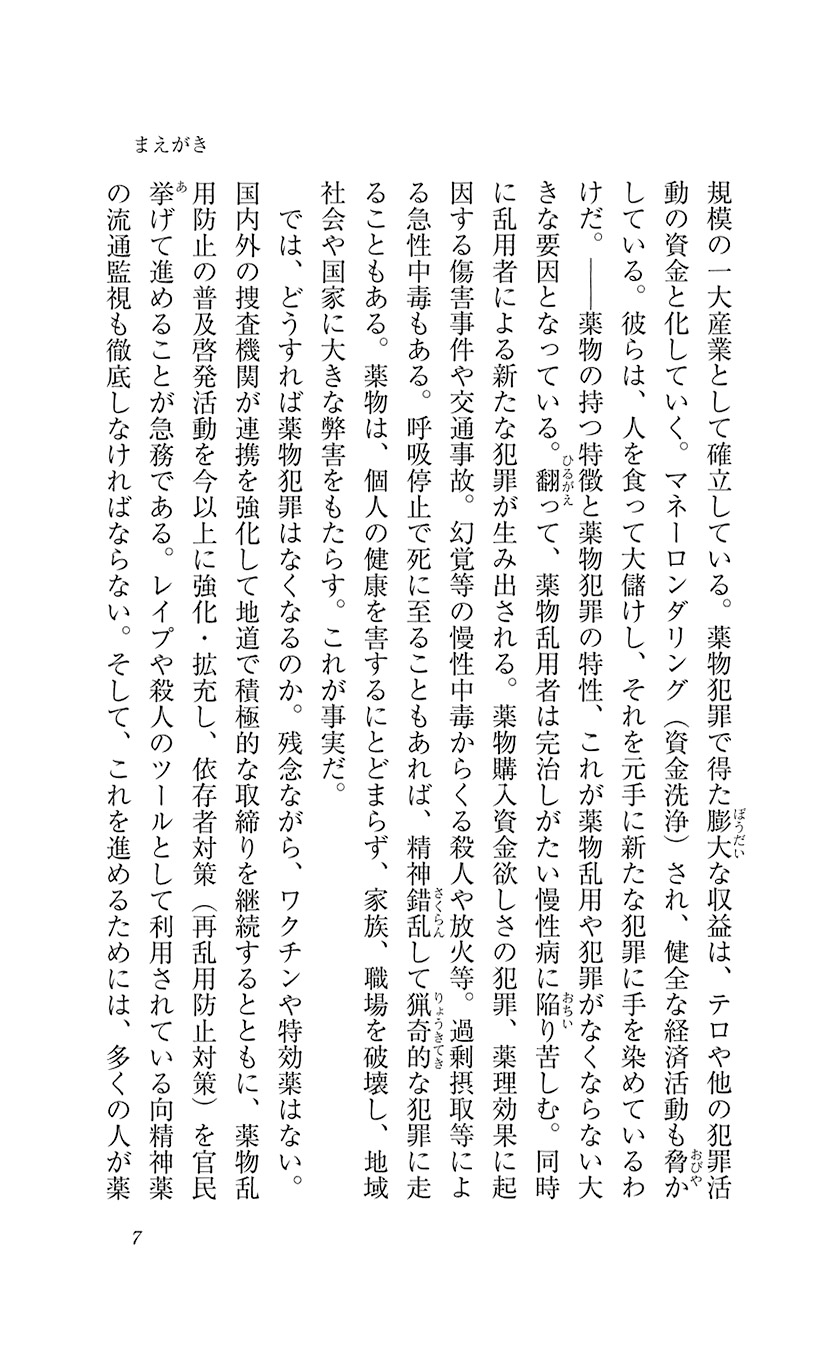 まえがき
規模の一大産業として確立している。薬物犯罪で得た膨大な収益は、テロや他の犯罪活
動の資金と化していく。マネーロンダリング（資金洗浄）され、健全な経済活動も脅か
している。彼らは、人を食って大儲けし、それを元手に新たな犯罪に手を染めているわ
けだ。――薬物の持つ特徴と薬物犯罪の特性、これが薬物乱用や犯罪がなくならない大
きな要因となっている。翻って、薬物乱用者は完治しがたい慢性病に陥り苦しむ。同時
に乱用者による新たな犯罪が生み出される。薬物購入資金欲しさの犯罪、薬理効果に起
因する傷害事件や交通事故。幻覚等の慢性中毒からくる殺人や放火等。過剰摂取等によ
る急性中毒もある。呼吸停止で死に至ることもあれば、精神錯乱して猟奇的な犯罪に走
ることもある。薬物は、個人の健康を害するにとどまらず、家族、職場を破壊し、地域
社会や国家に大きな弊害をもたらす。これが事実だ。
　では、どうすれば薬物犯罪はなくなるのか。残念ながら、ワクチンや特効薬はない。
国内外の捜査機関が連携を強化して地道で積極的な取締りを継続するとともに、薬物乱
用防止の普及啓発活動を今以上に強化・拡充し、依存者対策（再乱用防止対策）を官民
挙げて進めることが急務である。レイプや殺人のツールとして利用されている向精神薬
の流通監視も徹底しなければならない。そして、これを進めるためには、多くの人が薬
ぼうだい
おびや
ひるがえ
おちい
さくらん
りょうきてき
あ
7